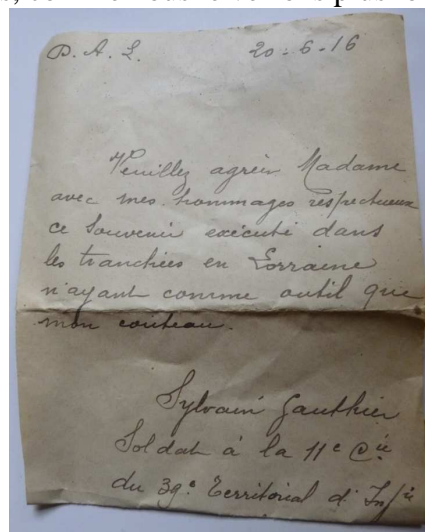 P. A. L. 20-6-16
Veuillez agréer Madame
avec mes hommages respectueux
ce Souvenir exécuté dans
les tranchées en Lorraine
n'ayant comme outil que
mon couteau.
Sylvain Gauthier
Soldat à la 11e Cie
du 39e Territorial d'Infie